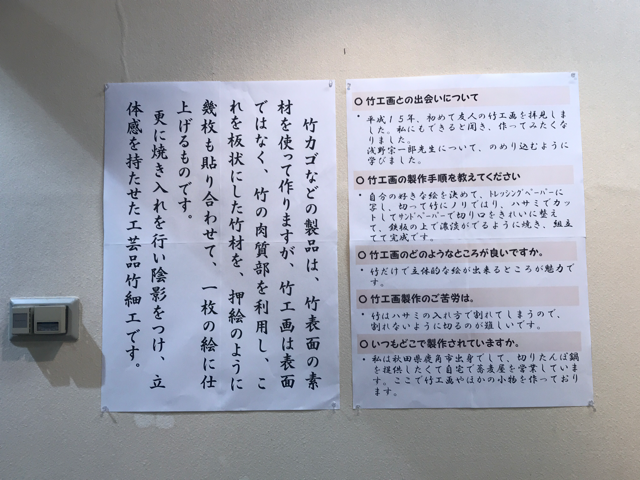 竹カゴなどの製品は、竹表面の素
材を使って作りますが、竹工画は表面
ではなく、竹の肉質部を利用し、こ
れを板状にした竹材を、押絵のように
幾枚も貼り合わせて、一枚の絵に仕
上げるものです。
更に焼き入れを行い陰影をつけ、立
体感を持たせた工芸品竹細工です。
○竹工画との出会いについて
・平成15年、初めて友人の竹工画を拝見しま
した。私にもできると聞き、作ってみたくな
りました。
浅野宗一郎先生について、のめり込むように
学びました。
○竹工画の製作手順を教えてください
・自分の好きな絵を決めて、トレッシングペーパーに
写し、切って竹にノリではり、ハサミでカッ
トしてサンドペーパーで切り口をきれいに整え
て、鉄板の上で濃淡がでるように焼き、組立
てて完成です。
○竹工画のどのようなところが良いですか。
・竹だけで立体的な絵が出来るところが魅力で
す。
○竹工画製作のご苦労は。
・竹はハサミの入れ方で割れてしまうので、
割れないように切るのが難しいです。
○いつもどこで製作されていますか。
・私は秋田県鹿角市出身でして、切りたんぽ鍋
を提供したくて自宅で蕎麦屋を営業していま
す。ここで竹工画やほかの小物を作っており
ます。